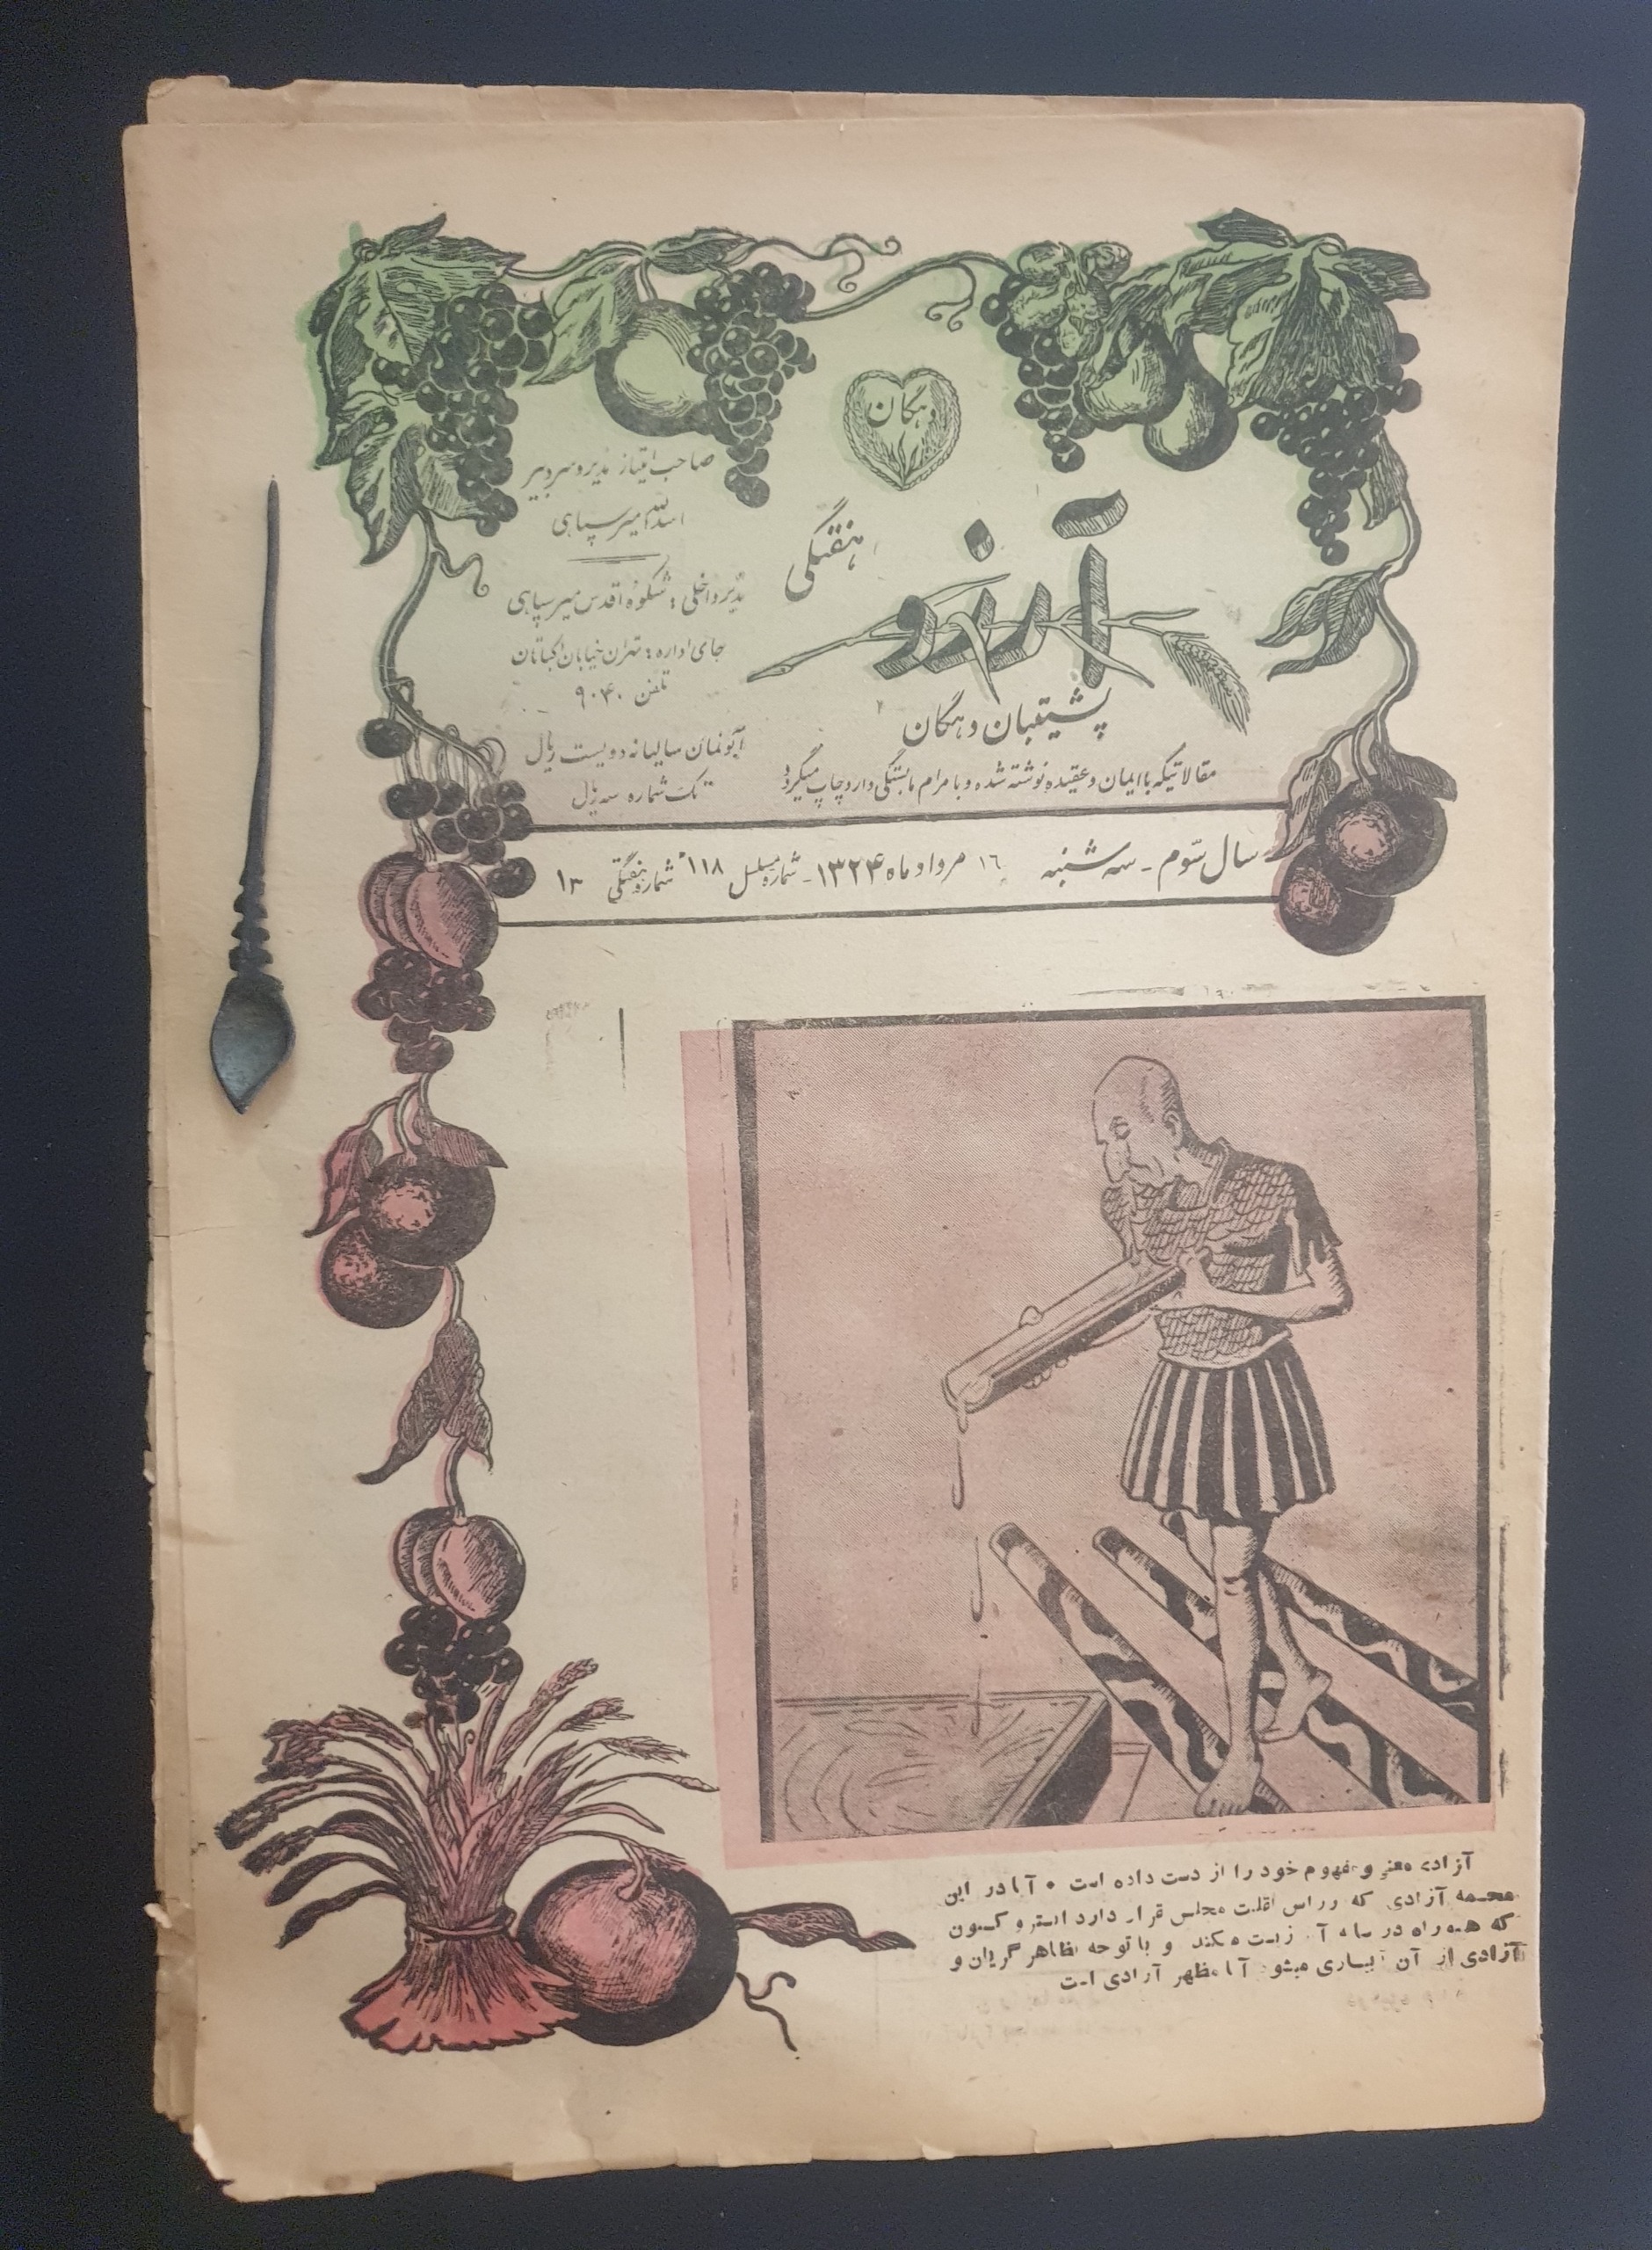 دهگان
آرزو
هفتگی
پشتیبان دهگان
مقالاتیکه باایمان وعقیده نوشته شده و با مرام ما بستگی دارد چاپ میگردد
صاحب امتیاز مدیر و سردبیر
اسدالله میرسپاهی
مدیر داخلی : شکوه اقدس میرسپاهی
جای اداره : تهران خیابان اکباتان
تلفن ۹۰۴۰
آبونمان سالیانه دویست ریال
تک شماره سه ریال
سال سوم - سه شنبه ۱۶ مرداد ماه ۱۳۲۴ - شماره مسلسل ۱۱۸ شماره هفتگی ۱۳
آزادی معنی و مفهوم خود را از دست داده است • آیا در این
مجسمه آزادی که در راس اقلیت مجلس قرار دارد استر و کسیون
که همراه در سایه آن زیست میکند و با توجه بظاهر گریان و
آزادی از آن آبیاری میشود آیا مظهر آزادی است